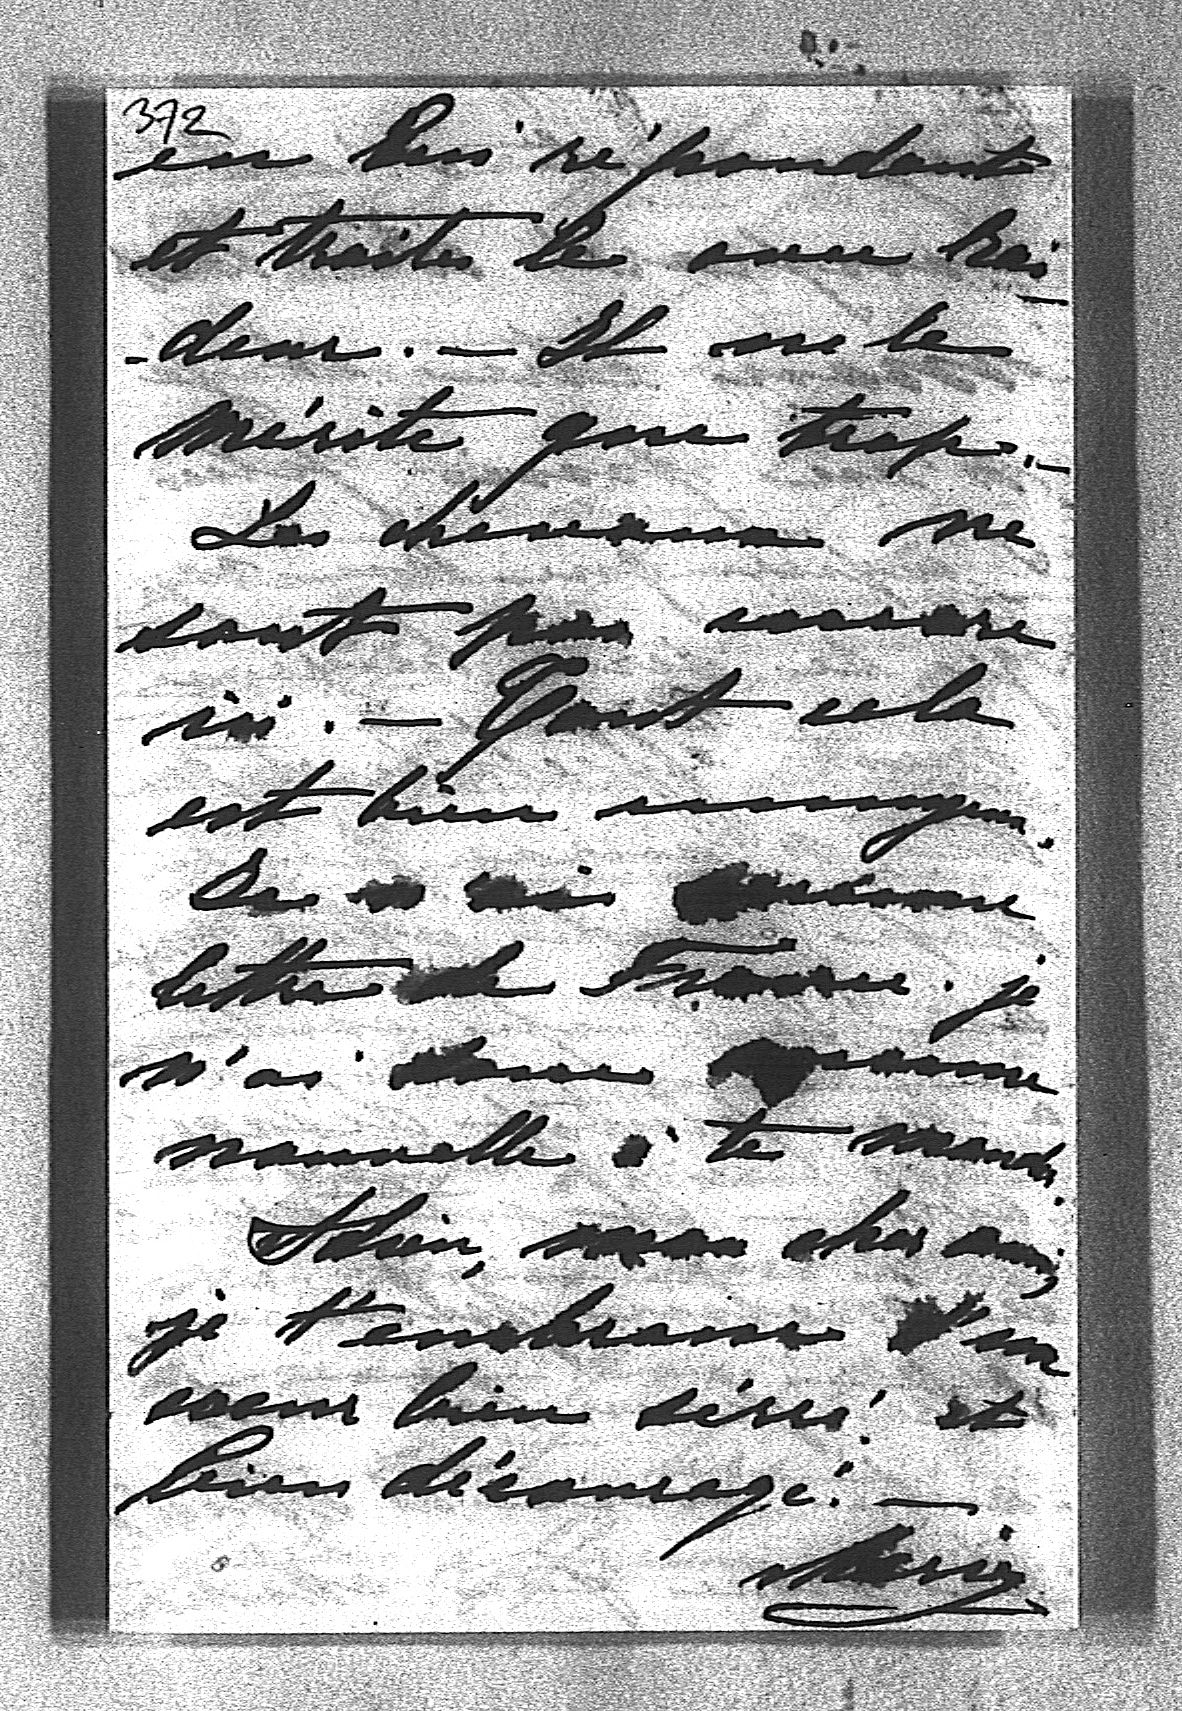 372
en lui répondant
et traites le avec rai-
-deur. — Il ne le
mérite que trop. —
Les chevaux ne
sont pas encore
ici. — Tout cela
est bien ennuyeu.
aucune
lettre de France. je
n'ai donc aucune
nouvelle à te mander.
Adieu, mon cher ami,
je t'embrasse d'un
coeur bien serré! et
bien découragé. —
Marie